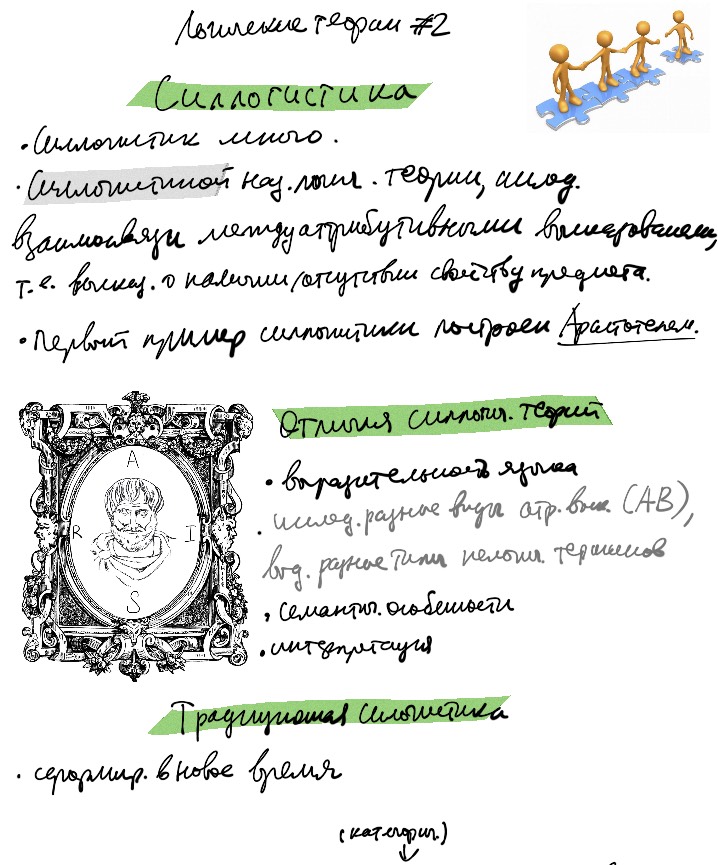 Логические теории #2
Силлогистика
• Силлогистик много.
• Силлогистикой наз. логич. теории, исслед.
взаимосвязи между атрибутивными высказываниями,
т.е. выказ. о наличии/отсутствии свойств у предмета.
• Первый пример силлогистики построен Аристотелем.
A
R I
S
Отличия силлогич. теорий
• выразительность языка
• исслед. разные виды атр. выск. (АВ),
вод. разные типы нелогич. терминов
• семантич. особености
• интерпретация
Традиционная силлогистика
• сформир. в новое время
(категорич.)